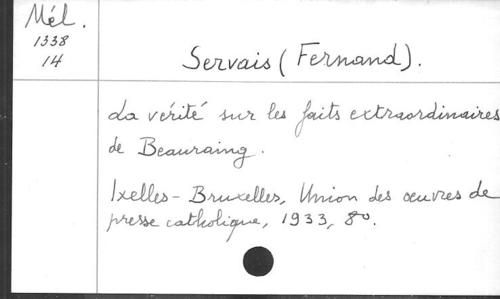 Mél.
1338
14
Servais (Fernand).
La vérité sur les faits extraordinaires
de Beauraing.
Ixelles-Bruxelles, Union des œuvres de
presse catholique, 1933, 8º.